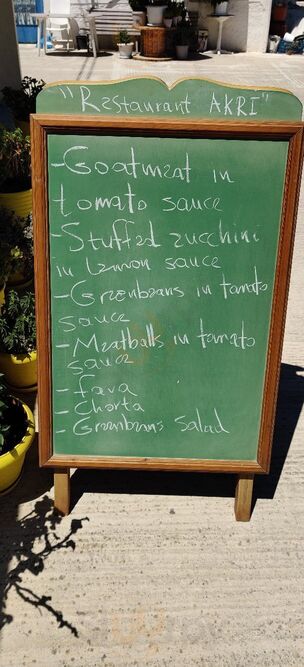 "Restaurant AKRI"
-Goatmeat in
tomato sauce
-Stuffed zucchini
in lemon sauce
-Greenbeans in tomato
sauce
-Meatballs in tomato
sauce
-fava
-Chorta
-Greenbeans salad